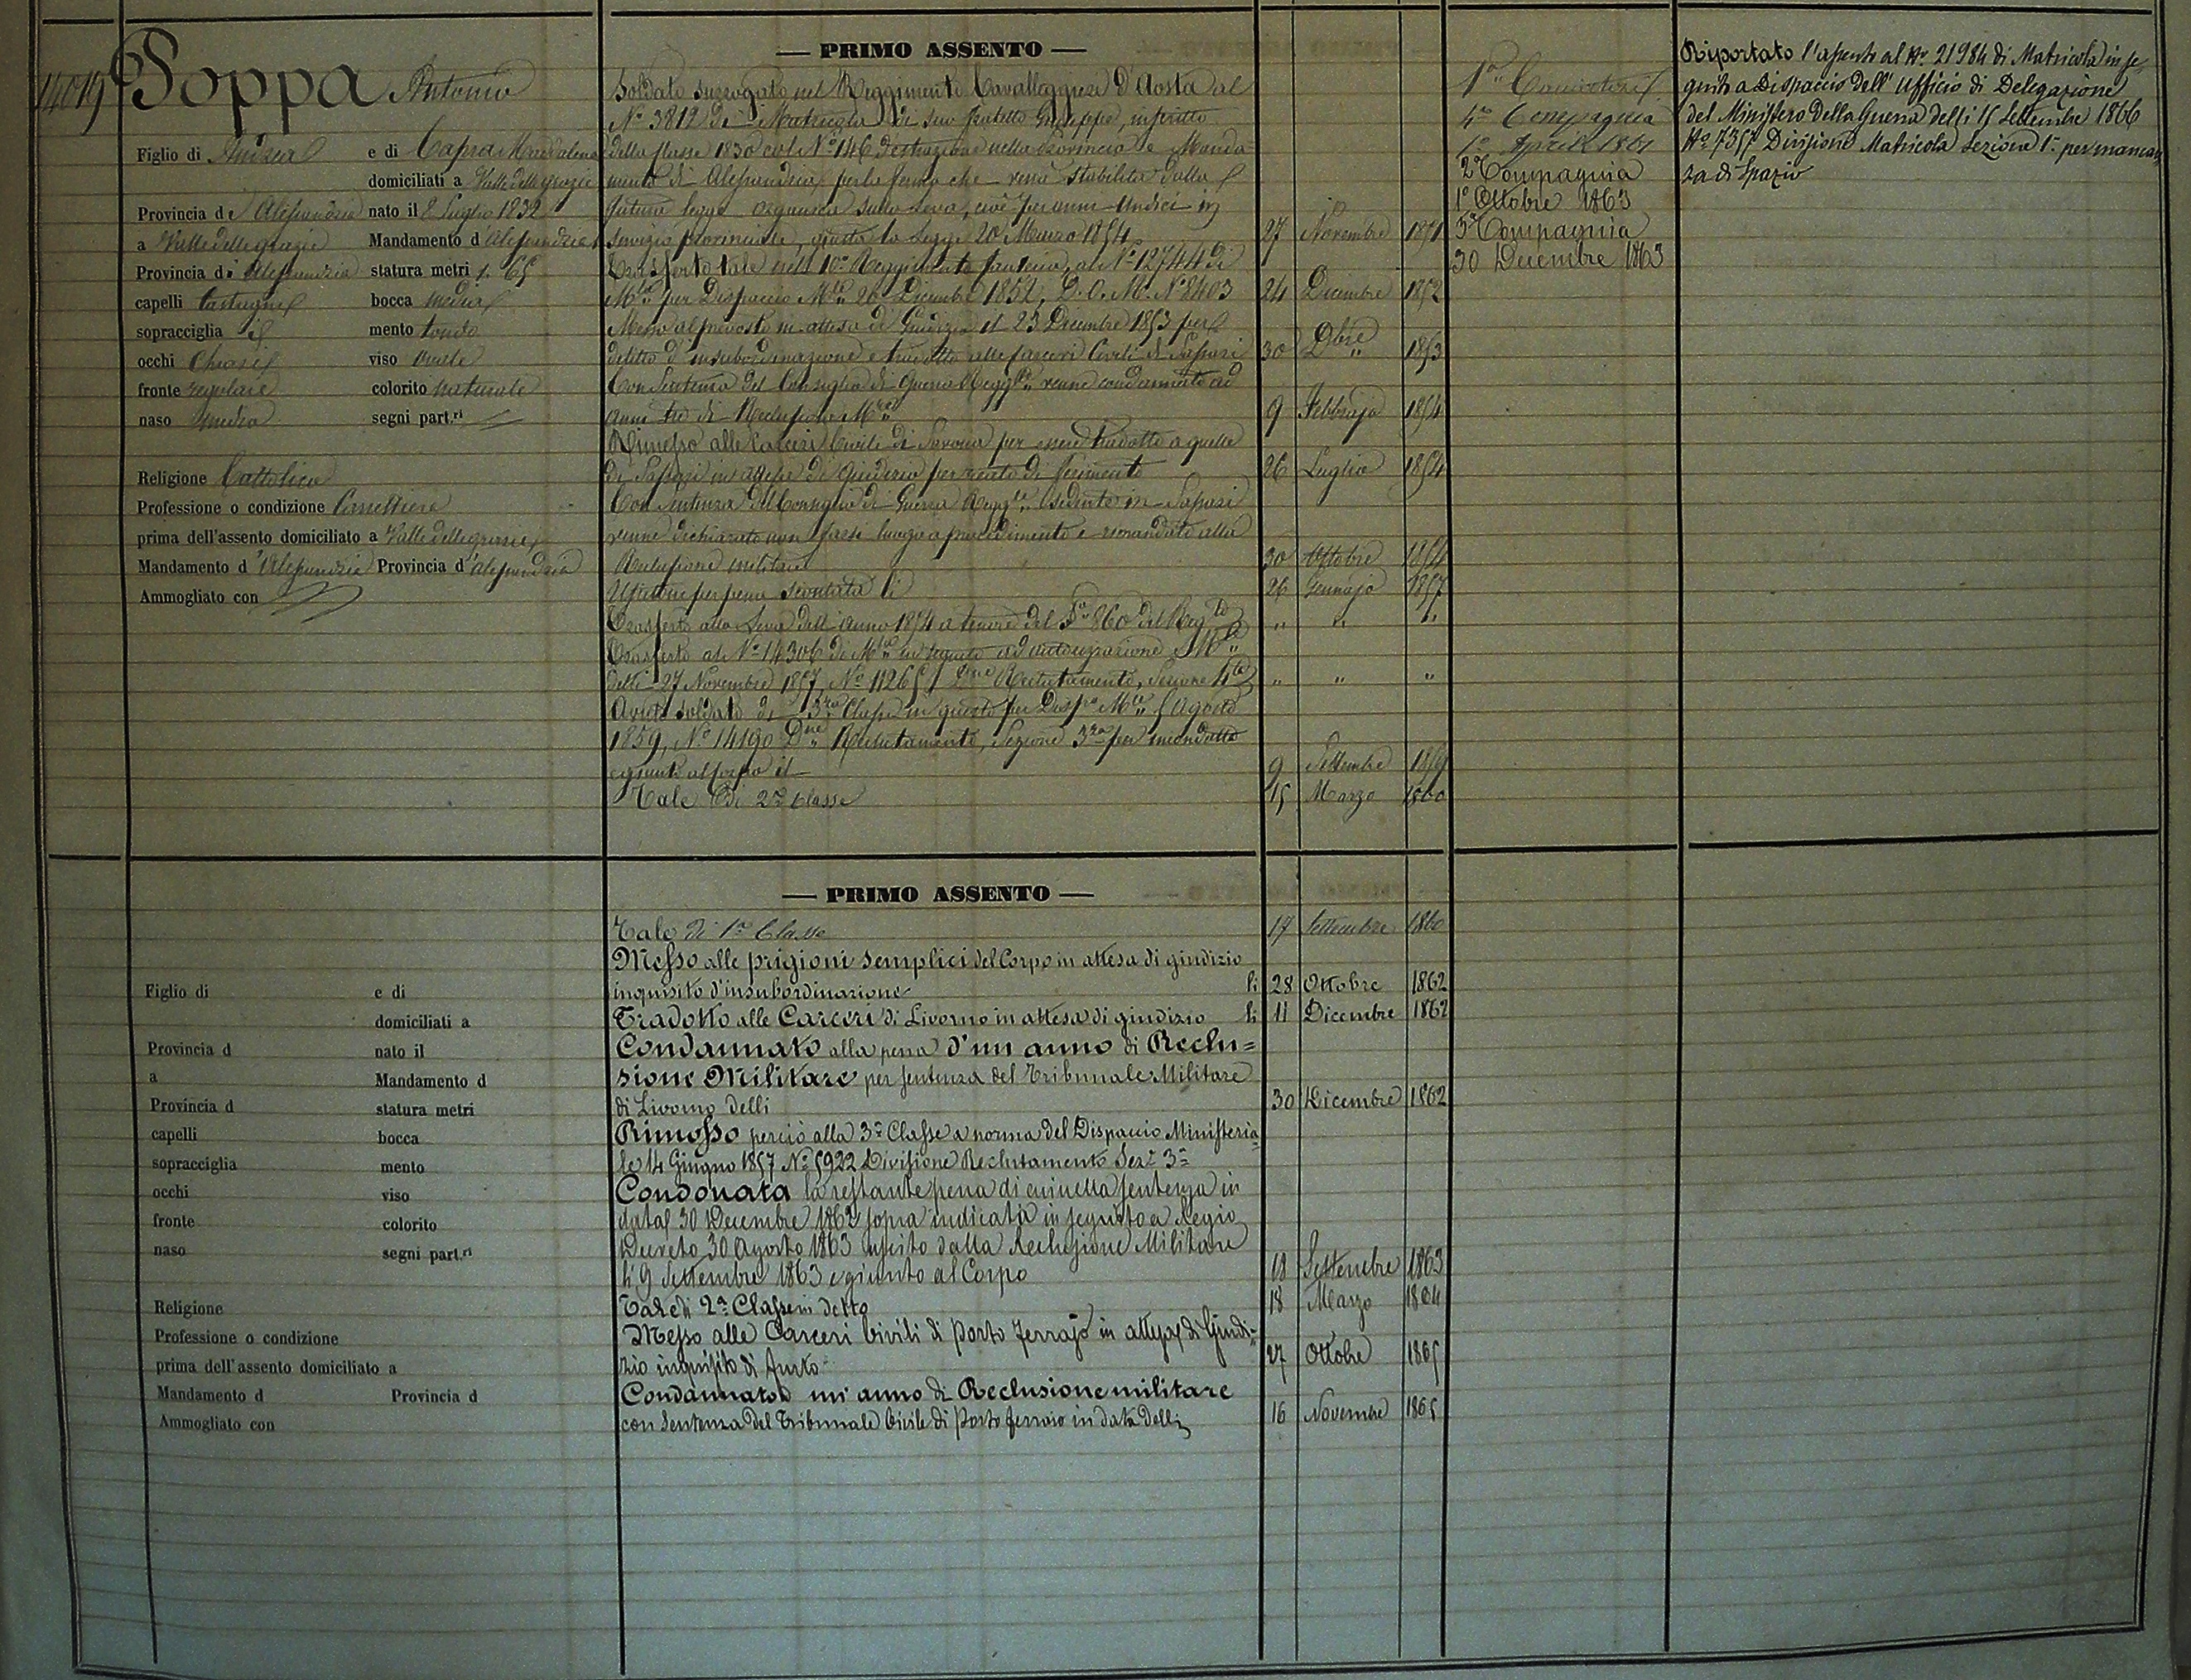 14019
Poppa Antonio
Figlio di Andrea e di Capra Maddalena
domiciliati a Valle delle grazie
Provincia di Alessandria nato il 8 Luglio 1832
a Valle delle grazie Mandamento d'Alessandria
Provincia di Alessandria statura metri 1. 65
capelli Castagni bocca media
sopracciglia id mento tondo
occhi viso ovale
fronte regolare colorito naturale
naso medio segni part.ri
Religione Cattolica
Professione o condizione
prima dell'assento domiciliato a Valle delle grazie
Mandamento d'Alessandria Provincia d'Alessandria
Ammogliato con
— PRIMO ASSENTO —
Soldato surrogato nel Reggimento Cavalleggieri D'Aosta al
N° 3812 di Matricola di suo fratello Giuseppe, inscritto
della classe 1830 col N° 146 d'estrazione nella Provincia e Manda
mento di Alessandria per la ferma che verrà stabilita dalla
futura legge organica sulla Leva, cioè per anni undici in
servizio provinciale, giusta la Legge 20 Marzo 1854 27 Novembre 1851
Trasferto tale nell 10° Reggimento fanteria, al N° 12744 di
M.la per Dispaccio M.le 26 Dicembre 1852, D. O. M. N° 8403 24 Dicembre 1852
Messo al prevosto in attesa di Giudizio il 23 Dicembre 1853 per
delitto d'insubordinazione e tradotto alle Carceri Civili di Sassari 30 Dbre 1853
Con Sentenza del Consiglio di Guerra Regg.le venne condannato ad
anni tre di Reclusione M.re 9 Febbrajo 1854
Rimesso alle Carceri Civili di Savona per essere tradotto a quelle
di Sassari in attesa di Giudizio per reato di ferimento 26 Luglio 1854
Con Sentenza del Consiglio di Guerra Regg.le sedente in Sassari
venne dichiarato non farsi luogo a procedimento e rimandato alla
Reclusione militare 30 Ottobre 1854
Uscitone per pena scontata li 26 Gennajo 1857
Trasferto alla Leva dell'anno 1854 a tenore del § 860 del Reg.to „ „ „
Trasferto al N° 14306 di M.la in seguito ad autorizzazione M.le
delli 27 Novembre 1857, N° 11265, D.ne Reclutamento, Sezione 4.ta „ „ „
Avuto soldato di 3.za Classe in questo per Disp.o M.le 5 Agosto
1859, N° 14190 D.ne Reclutamento, Sezione 3.za per incondotta
e giunto al Corpo il 9 Settembre 1859
Tale di 2.a Classe 15 Marzo 1860
1.a
4.a Compagnia
1° Aprile 1861
2a Compagnia
1° Ottobre 1863
5a Compagnia
30 Decembre 1863
Riportato l'assento al N° 21984 di Matricola in se-
guito a Dispaccio dell'Ufficio di Delegazione
del Ministero Della Guerra delli 15 Settembre 1866
N° 7357 Divisione Matricola Sezione 1a per mancan
za di spazio
— PRIMO ASSENTO —
Figlio di e di
domiciliati a
Provincia d nato il
a Mandamento d
Provincia d statura metri
capelli bocca
sopracciglia mento
occhi viso
fronte colorito
naso segni part.ri
Religione
Professione o condizione
prima dell'assento domiciliato a
Mandamento d Provincia d
Ammogliato con
Tale di 1.a Classe 17 Settembre 1860
Messo alle prigioni semplici del Corpo in attesa di giudizio
inquisito d'insubordinazione li 28 Ottobre 1862
Tradotto alle Carceri di Livorno in attesa di giudizio li 11 Dicembre 1862
Condannato alla pena d'un anno di Reclu=
sione Militare per sentenza del Tribunale Militare
di Livorno delli 30 Dicembre 1862
Rimosso perciò alla 3a Classe a norma del Dispaccio Ministeria
le 14 Giugno 1857 N° 5922 Divisione Reclutamento Sez.e 3a
Condonata la restante pena di cui nella sentenza in
data 30 Decembre 1862 sopra indicata in seguito a Regio
Decreto 30 Agosto 1863 uscito dalla Reclusione Militare
li 9 Settembre 1863 e giunto al Corpo 18 Settembre 1863
Tale di 2a Classe in detto 18 Marzo 1864
Messo alle Carceri Civili di Porto Ferrajo in attesa di Giudi=
zio inquisito di furto 27 Ottobre 1865
Condannato ad un anno di Reclusione militare
con Sentenza del Tribunale Civile di Porto ferraio in data delli 16 Novembre 1865